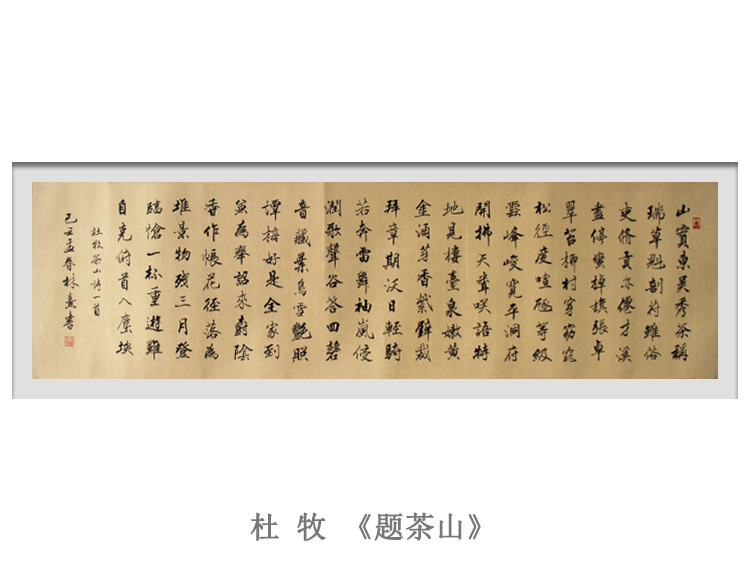 山實東吳秀茶稱
瑞草魁剖符雖俗
吏脩貢亦僊才溪
盡停蠻棹旗張卓
翠苔柳村穿窈窕
松徑度喧豗等級
雲峰峻寬平洞府
開拂天聞咲語特
地見樓臺泉嫩黃
金涌芽香紫璧裁
拜章期沃日輕騎
若奔雷舞袖嵐侵
澗歌聲谷答回磬
音藏葉鳥雪艷照
潭梅好是全家到
兼為奉詔來樹陰
香作帳花徑落為
堆景物殘三月登
臨愴一杯重遊難
自克俯首入塵埃
杜牧茶山詩一首
己丑孟春林書
杜 牧 《题茶山》